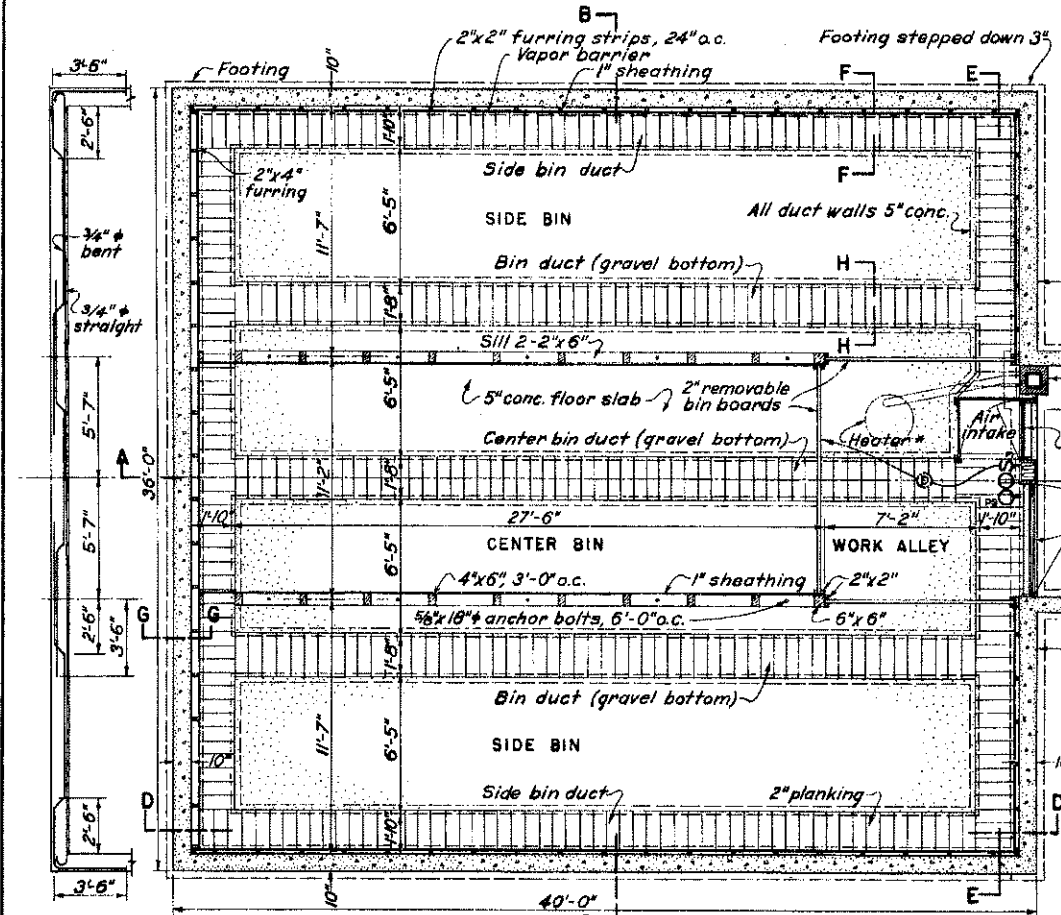 B
2"x2" furring strips, 24" o.c.
Vapor barrier
1" sheathing
Footing stepped down 3"
Footing
3'-6"
10"
F
E
2'-6"
1'-10"
2"x4"
furring
Side bin duct
F
SIDE BIN
All duct walls 5" conc.
3/4" φ
bent
11'-7"
6'-5"
Bin duct (gravel bottom)
H
3/4" φ
straight
1'-8"
Sill 2-2"x6"
H
5" conc. floor slab
2" removable
bin boards
6'-5"
5'-7"
Air
intake
Center bin duct (gravel bottom)
Heater*
A
36'-0"
11'-2"
1'-8"
S3
PS
1'-10"
27'-6"
7'-2"
1'-10"
5'-7"
CENTER BIN
WORK ALLEY
6'-5"
4"x6", 3'-0" o.c.
1" sheathing
2"x2"
G
G
5/8"x18" φ anchor bolts, 6'-0" o.c.
6"x6"
2'-6"
3'-6"
1'-8"
Bin duct (gravel bottom)
11'-7"
6'-5"
SIDE BIN
10"
D
Side bin duct
2" planking
D
2'-6"
1'-10"
E
3'-6"
10"
40'-0"